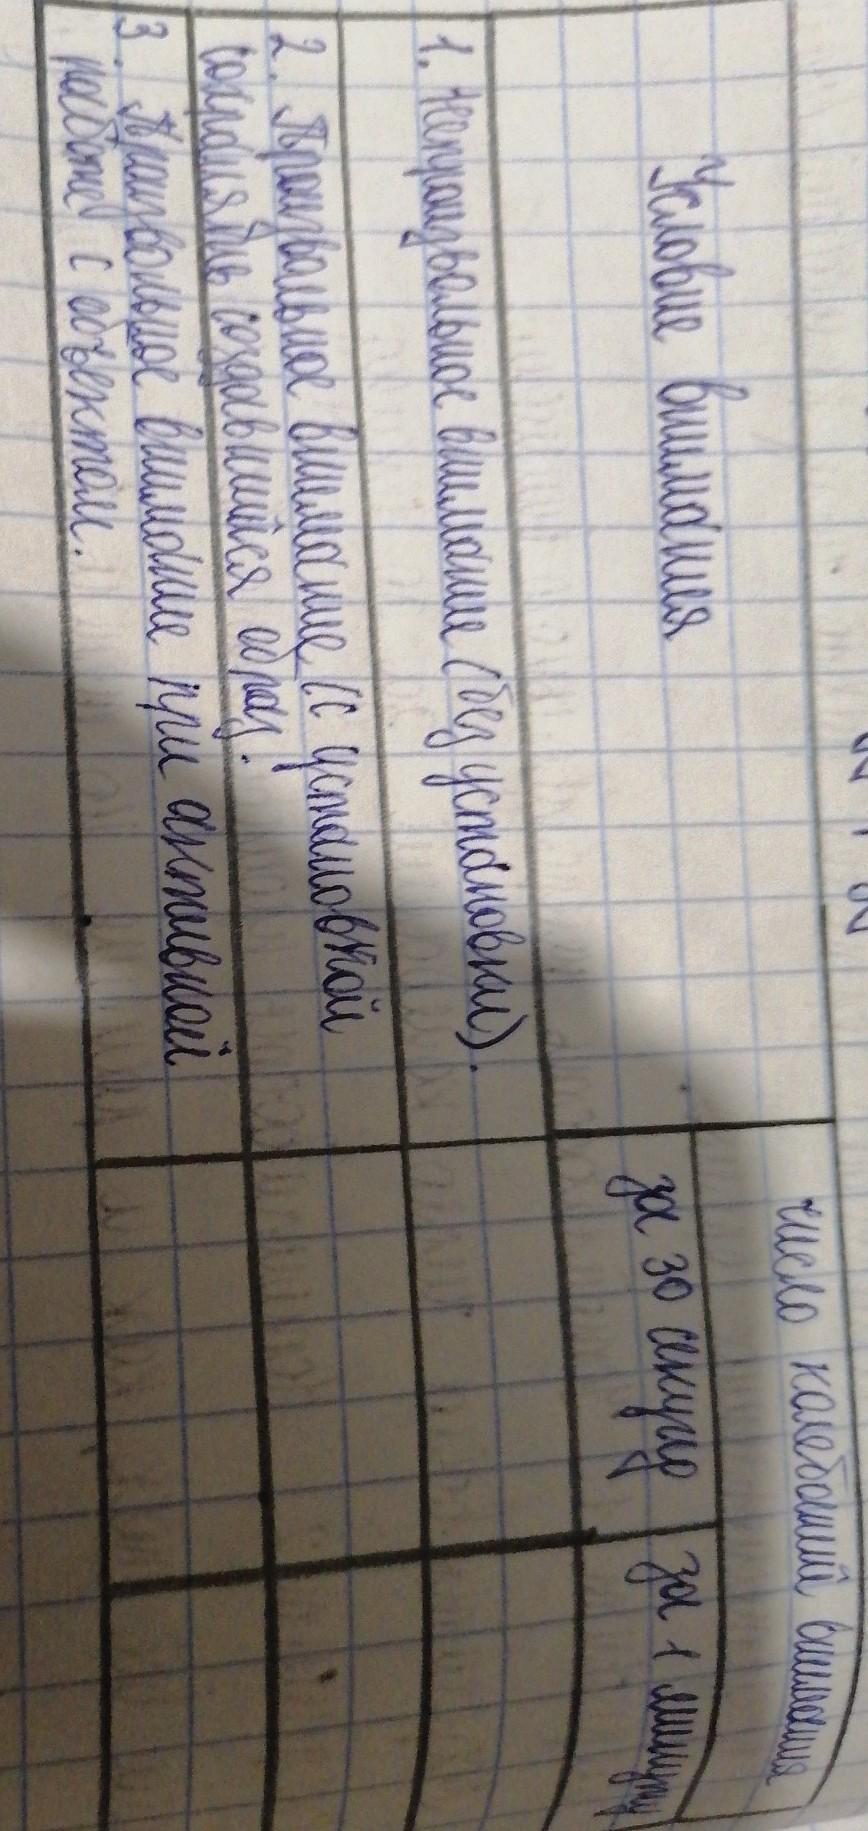 Условие внимания
число колебаний внимания
за 30 секунд
за 1 минуту
1. Непроизвольное внимание (без установки).
2. Произвольное внимание (с установкой
сохранять создавшийся образ.
3. Произвольное внимание при активной
работе с объектом.